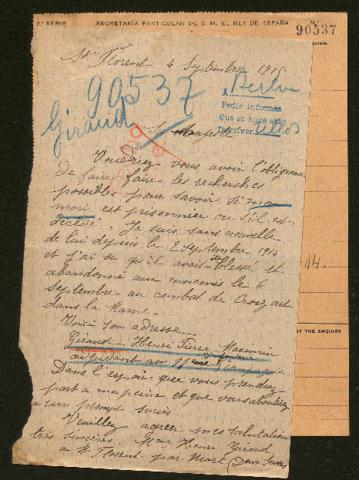 SERIE SECRETARÍA PARTICULAR DE S. M. EL REY DE ESPAÑA
90537
St Florent 4 Septembre 1915
90537
Giraud
A Berlin
Pedir informes
Voudriez vous avoir l'obligeance
de faire faire les recherches
possibles pour savoir si mon
mari est prisonnier ou s'il est
décédé. Je suis sans nouvelle
de lui depuis le 2 Septembre 1914
et j'ai su qu'il avait blessé et
abandonné aux ennemis le 6
septembre au combat de
dans la Marne.
Voici son adresse
Giraud - Henri Pierre
adjudant au
Dans l'espoir que vous prendrez
part a ma peine et que vous aboutirez
a un prompt succès.
Veuillez agréer mes salutations
très sincères. Mme Henri Giraud
a St Florent par Niort (Deux Sèvres)
14.
OF THE ENQUIRY